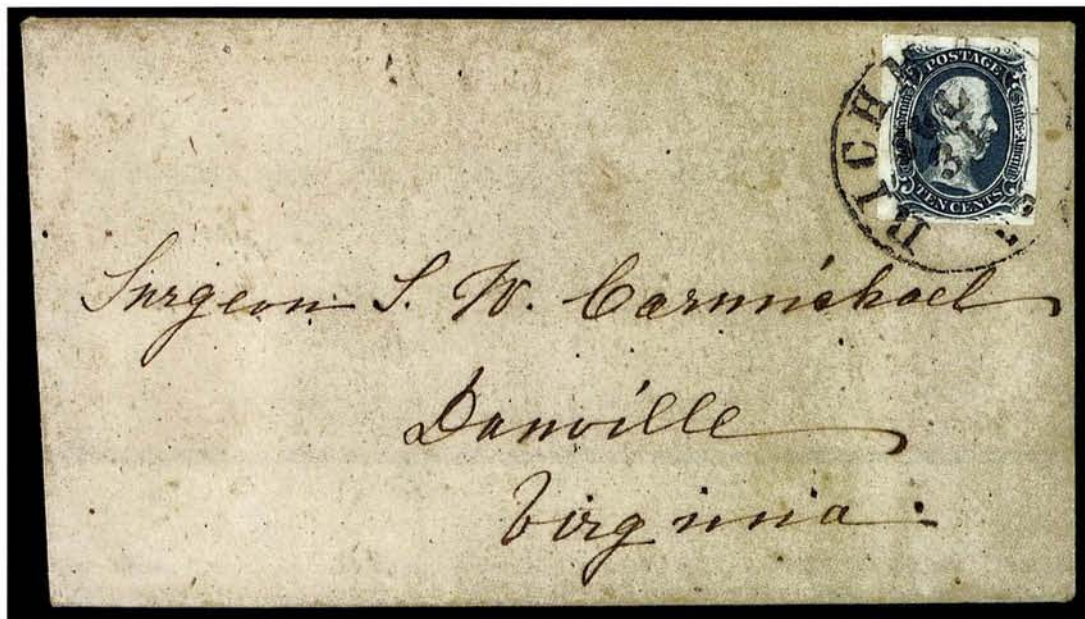 POSTAGE
TEN CENTS
RICHM
Surgeon S. W. Carmichael
Danville
Virginia.